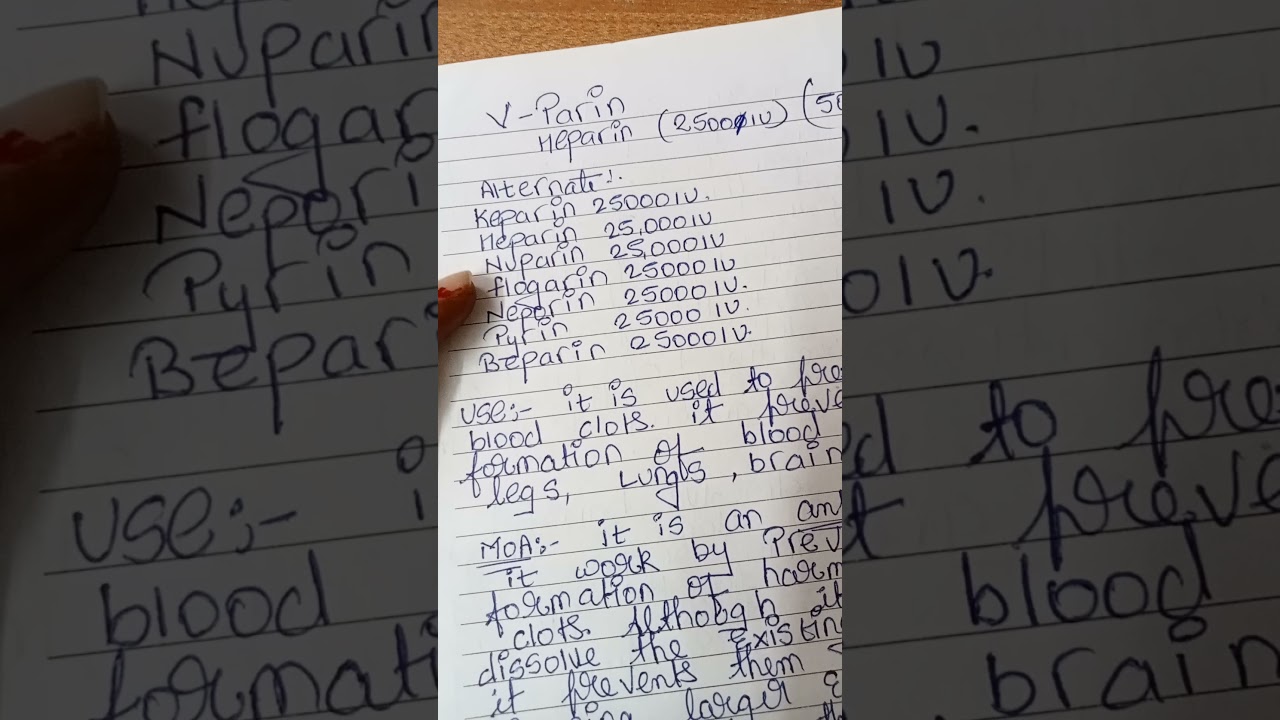 V-Parin
Heparin (25000IU) (50
Alternate:.
Keparin 25000IU.
Heparin 25,000IU
Nuparin 25,000IU
flogarin 25000IU
Neporin 25000IU.
Pyrin 25000 IU.
Beparin 25000IU.
USE:- it is used to pre
blood clots. it preve
formation of blood
legs, Lungs, brain
MOA:- it is an an
it work by Prev
formation of harm
clots. Although it
dissolve the existin
it prevents them
larger